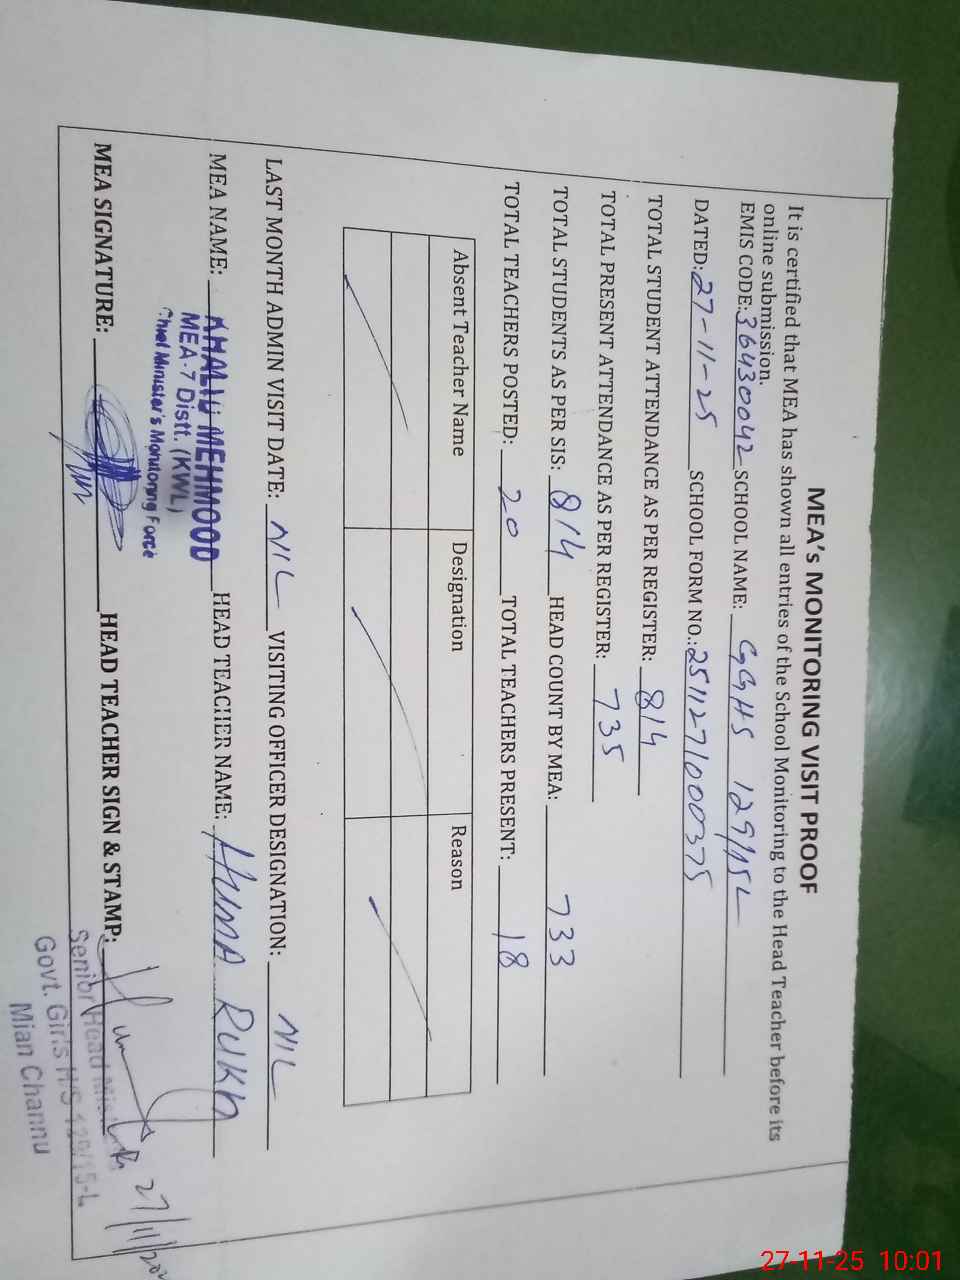 MEA's MONITORING VISIT PROOF
It is certified that MEA has shown all entries of the School Monitoring to the Head Teacher before its
online submission.
EMIS CODE: 36430042 SCHOOL NAME: GGHS 129/15L
DATED: 27-11-25 SCHOOL FORM NO.: 251127/000375
TOTAL STUDENT ATTENDANCE AS PER REGISTER: 814
TOTAL PRESENT ATTENDANCE AS PER REGISTER: 735
TOTAL STUDENTS AS PER SIS: 814 HEAD COUNT BY MEA: 733
TOTAL TEACHERS POSTED: 20 TOTAL TEACHERS PRESENT: 18
Absent Teacher Name Designation Reason
LAST MONTH ADMIN VISIT DATE: NIL VISITING OFFICER DESIGNATION: NIL
MEA NAME: KHALID MEHMOOD HEAD TEACHER NAME: HUMA RUKH
MEA-7 Distt. (KWL)
Chief Minister's Monitoring Force
MEA SIGNATURE: HEAD TEACHER SIGN & STAMP:
27/11/
Senior Head
Govt. Girls H/S 129/15-L
Mian Channu
27-11-25 10:01